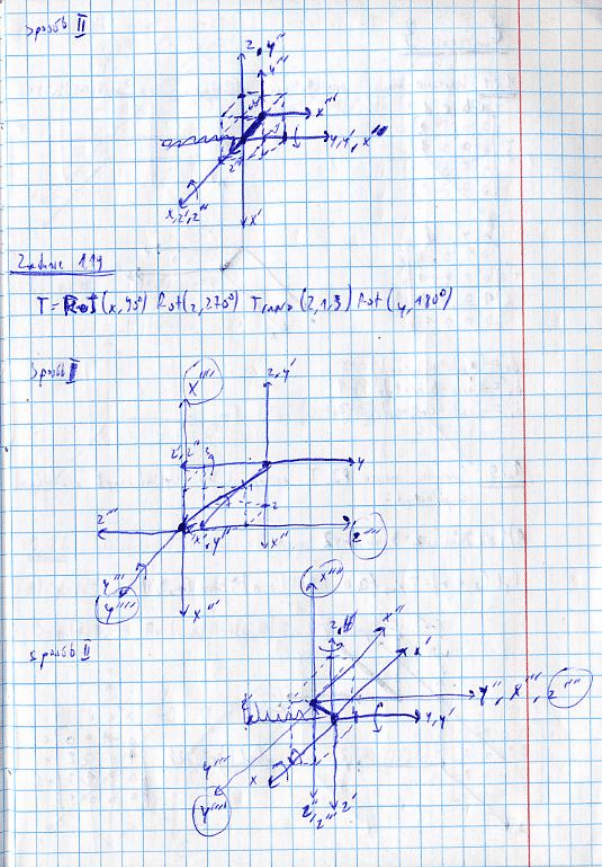 sposób II
z, y'''
y''''
x'''
y, y', x''''
z'''
x, z', z''
x'
Zadanie 1.19
T = Rot(x, 90°) Rot(z, 270°) Trans(2,1,3) Rot(y, 180°)
sposób I
x''''
z, y'
z', z''
3
y
z'''
2
z''''
x', y''
x''
y'''
y''''
x'''
sposób II
x''''
z,
x''
x'
y'', x''', z''''
y, y'
x
y'''
y''''
z'', z'''
z'